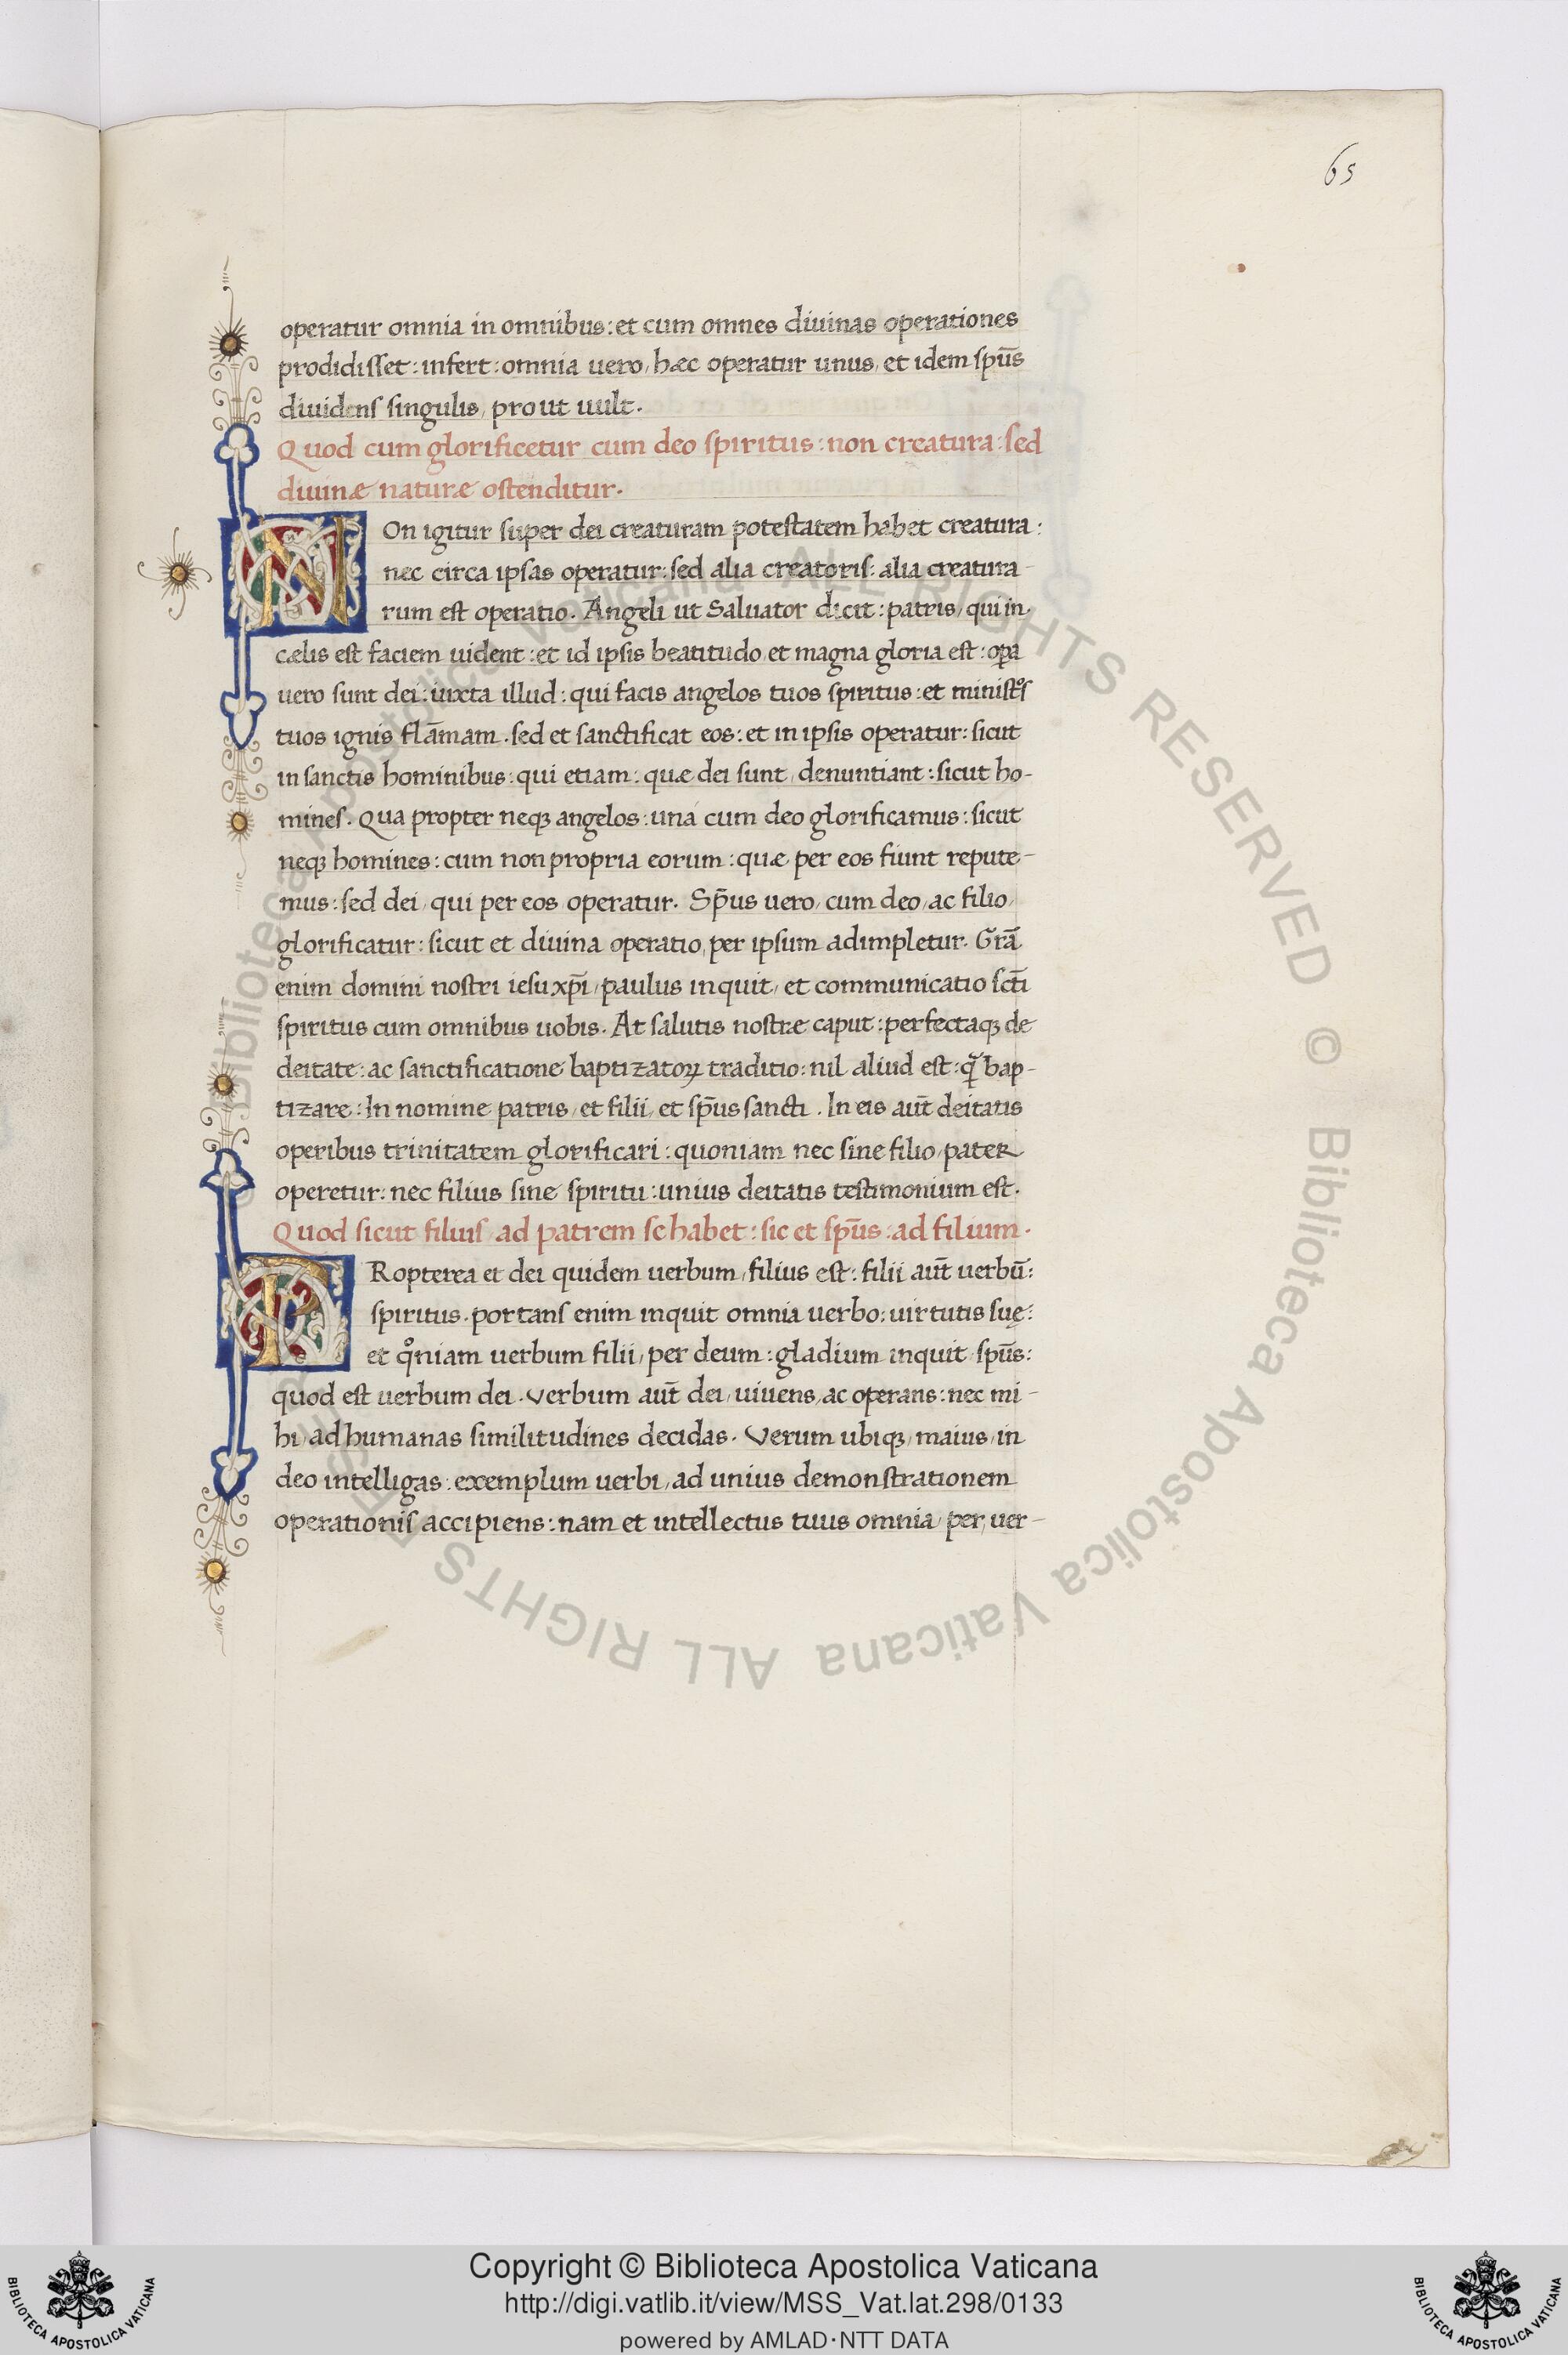 65
operatur omnia in omnibus: et cum omnes diuinas operationes
prodidisset: infert: omnia uero, hæc operatur unus, et idem sp̄us
diuidens singulis, prout uult.
Quod cum glorificetur cum deo spiritus: non creatura: sed
diuinæ naturæ ostenditur.
NOn igitur super dei creaturam potestatem habet creatura:
nec circa ipsas operatur: sed alia creatoris: alia creatura-
rum est operatio. Angeli ut Saluator dicit: patris, qui in
cælis est faciem uident: et id ipsis beatitudo et magna gloria est: opa
uero sunt dei: iuxta illud: qui facis angelos tuos spiritus: et ministͦs
tuos ignis flāmam. sed et sanctificat eos: et in ipsis operatur: sicut
in sanctis hominibus: qui etiam: quæ dei sunt, denuntiant: sicut ho-
mines. Qua propter neqꝫ angelos: uná cum deo glorificamus: sicut
neqꝫ homines: cum non propria eorum: quæ per eos fiunt repute-
mus: sed dei, qui per eos operatur. Sp̄us uero, cum deo, ac filio,
glorificatur: sicut et diuina operatio, per ipsum adimpletur. Grā
enim domini nostri iesu xp̄i, paulus inquit, et communicatio sc̄ti
spiritus cum omnibus uobis. At salutis nostræ caput: perfectaqꝫ de
deitate: ac sanctificatione baptizatoꝝ traditio: nil aliud est: q̃ bap-
tizare: In nomine patris, et filii, et sp̄us sancti. In eis aut̄ deitatis
operibus trinitatem glorificari: quoniam nec sine filio, pater
operetur: nec filius sine spiritu: unius deitatis testimonium est.
Quod sicut filius, ad patrem se habet: sic et sp̄us: ad filium.
PRopterea et dei quidem uerbum, filius est: filii aut̄ uerbū:
spiritus. portans enim inquit omnia uerbo: uirtutis suę:
et qͦniam uerbum filii, per deum: gladium inquit sp̄us:
quod est uerbum dei. Verbum aut̄ dei, uiuens, ac operans: nec mi-
hi, ad humanas similitudines decidas. Verum ubiqꝫ, maius, in
deo intelligas: exemplum uerbi, ad unius demonstrationem
operationis accipiens: nam et intellectus tuus omnia, per, uer-
© Biblioteca Apostolica Vaticana ALL RIGHTS RESERVED © Biblioteca Apostolica Vaticana ALL RIGHTS RESERVED
BIBLIOTECA APOSTOLICA VATICANA
Copyright © Biblioteca Apostolica Vaticana
http://digi.vatlib.it/view/MSS_Vat.lat.298/0133
powered by AMLAD·NTT DATA
BIBLIOTECA APOSTOLICA VATICANA